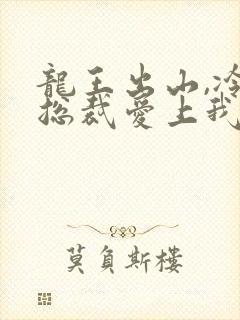 龍王出山,冷
總裁愛上我
莫負斯樓